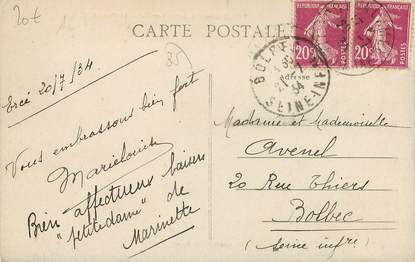 20€
CARTE POSTALE
35
Ercé 20/7/34
Vous embrassons bien fort
Marielouise
Bien affectueux baisers
"petite dame" de
Marinette
RÉPUBLIQUE FRANÇAISE
20c POSTES
RÉPUBLIQUE FRANÇAISE
20c POSTES
BOLBEC
34
SEINE-INFRE
Adresse
Madame et Mademoiselle
Avenel
20 Rue Thiers
Bolbec
(Seine infre)